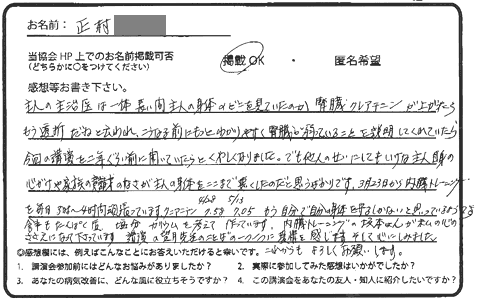 お名前： 正村
当協会HP上でのお名前掲載可否
（どちらかに〇をつけてください）
掲載OK ・ 匿名希望
感想等お書き下さい。
主人の主治医は一体長い間主人の身体のどこを見ていたのか 腎臓クレアチニンが上がったら
もう透析だねと云われ、こうなる前にもっとわかりやすく腎臓が弱っていることを説明してくれていたら
今回の講演を二年ぐらい前に聞いていたらとくやしくなりました。でも他人のせいにしてもいけない主人自身の
心がけや家族の認識のなさが主人の身体をここまで悪くしたのだと思うばかりです。3月23日から内臓トレーニング
4/28 5/13
を毎日 3時〜4時間頑張っています クレアチニン 7.58 7.05 もう自分で自分の身体を守るしかないと思っているようです
食事もたんぱく質 塩分 カリウムを考えて作っています。内臓トレーニングの坂本さんがまた心の
ささえになって下さっています 講演の望月先生のことばの一つ一つに感謝を感じ
これからもよろしくお願いします。
◎感想欄には、例えばこんなことにお答えいただけると幸いです。
1. 講演会参加前にはどんなお悩みがありましたか？ 2. 実際に参加してみた感想はいかがでしたか？
3. あなたの病気改善に、どんな風に役立ちそうですか？ 4. この講演会をあなたの友人・知人に紹介したいですか？